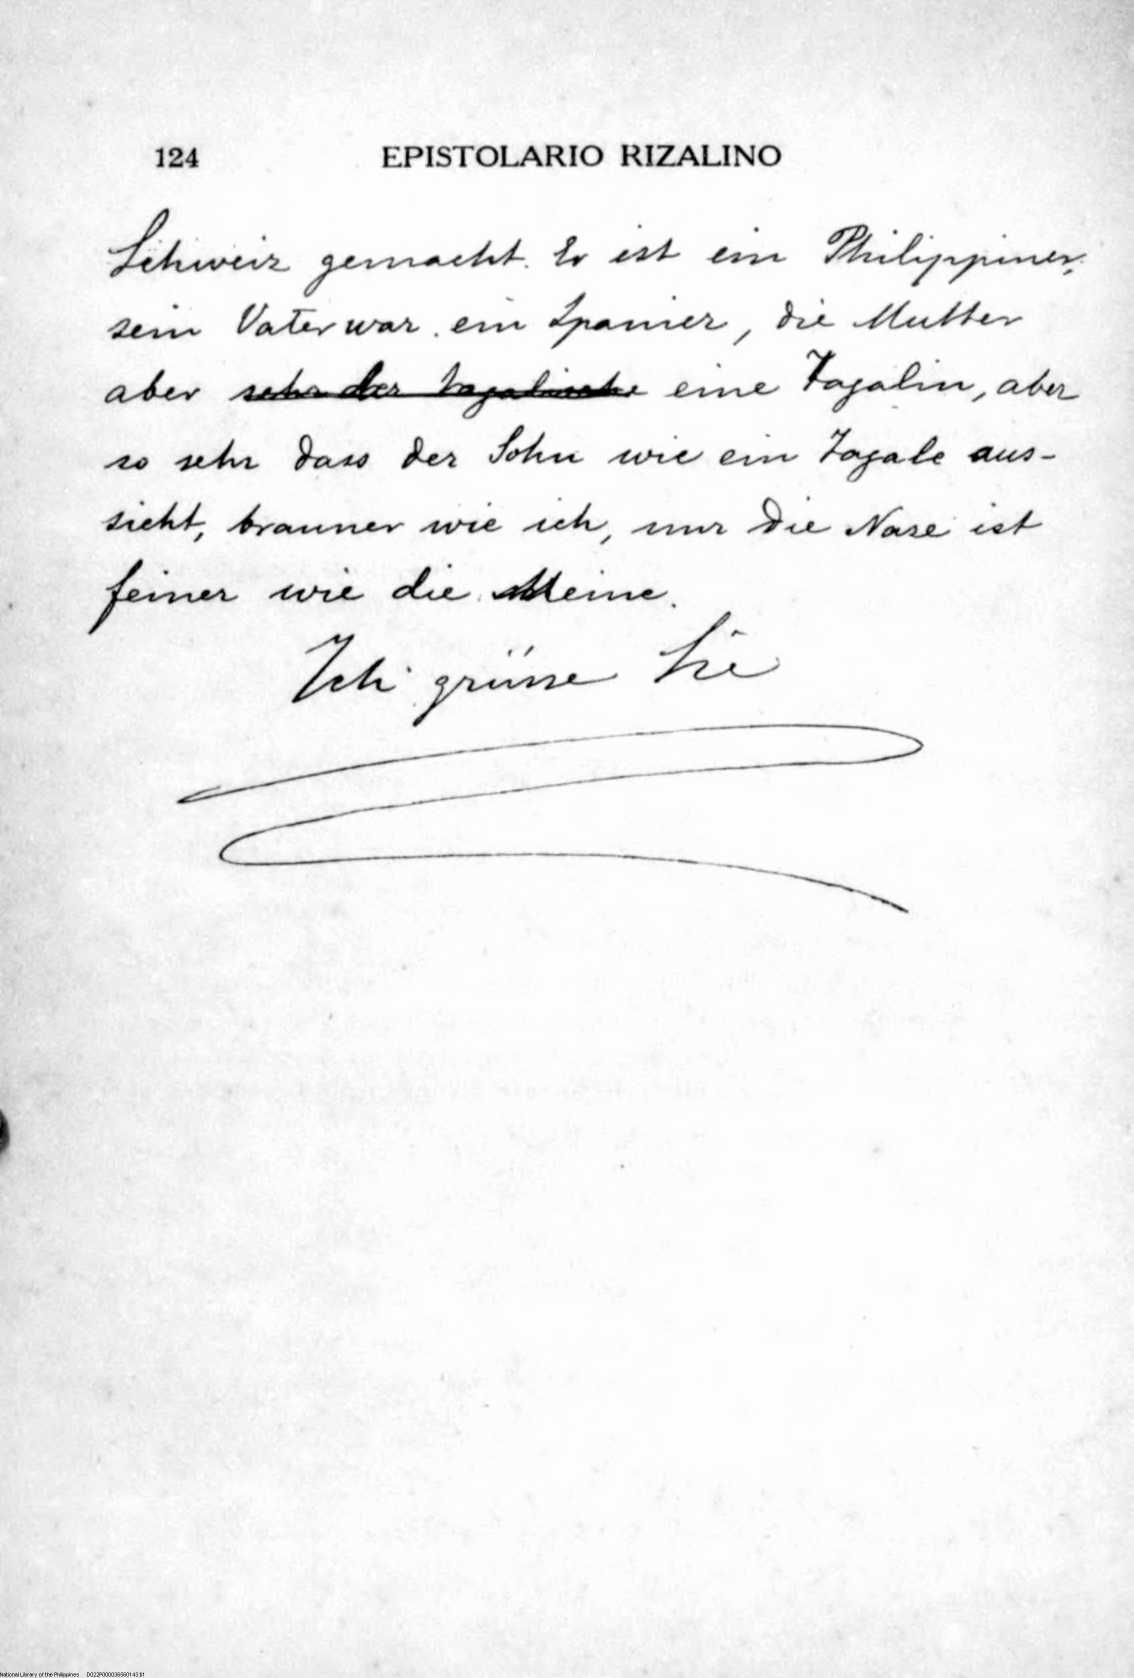 124 EPISTOLARIO RIZALINO
Schweiz gemacht. Er ist ein Philippiner,
sein Vater war ein Spanier, die Mutter
aber sehr der tagalische eine Tagalin, aber
so sehr dass der Sohn wie ein Tagale aus-
sieht, brauner wie ich, nur die Nase ist
feiner wie die Meine.
Ich grüsse Sie
National Library of the Philippines D022P000036560143.tif